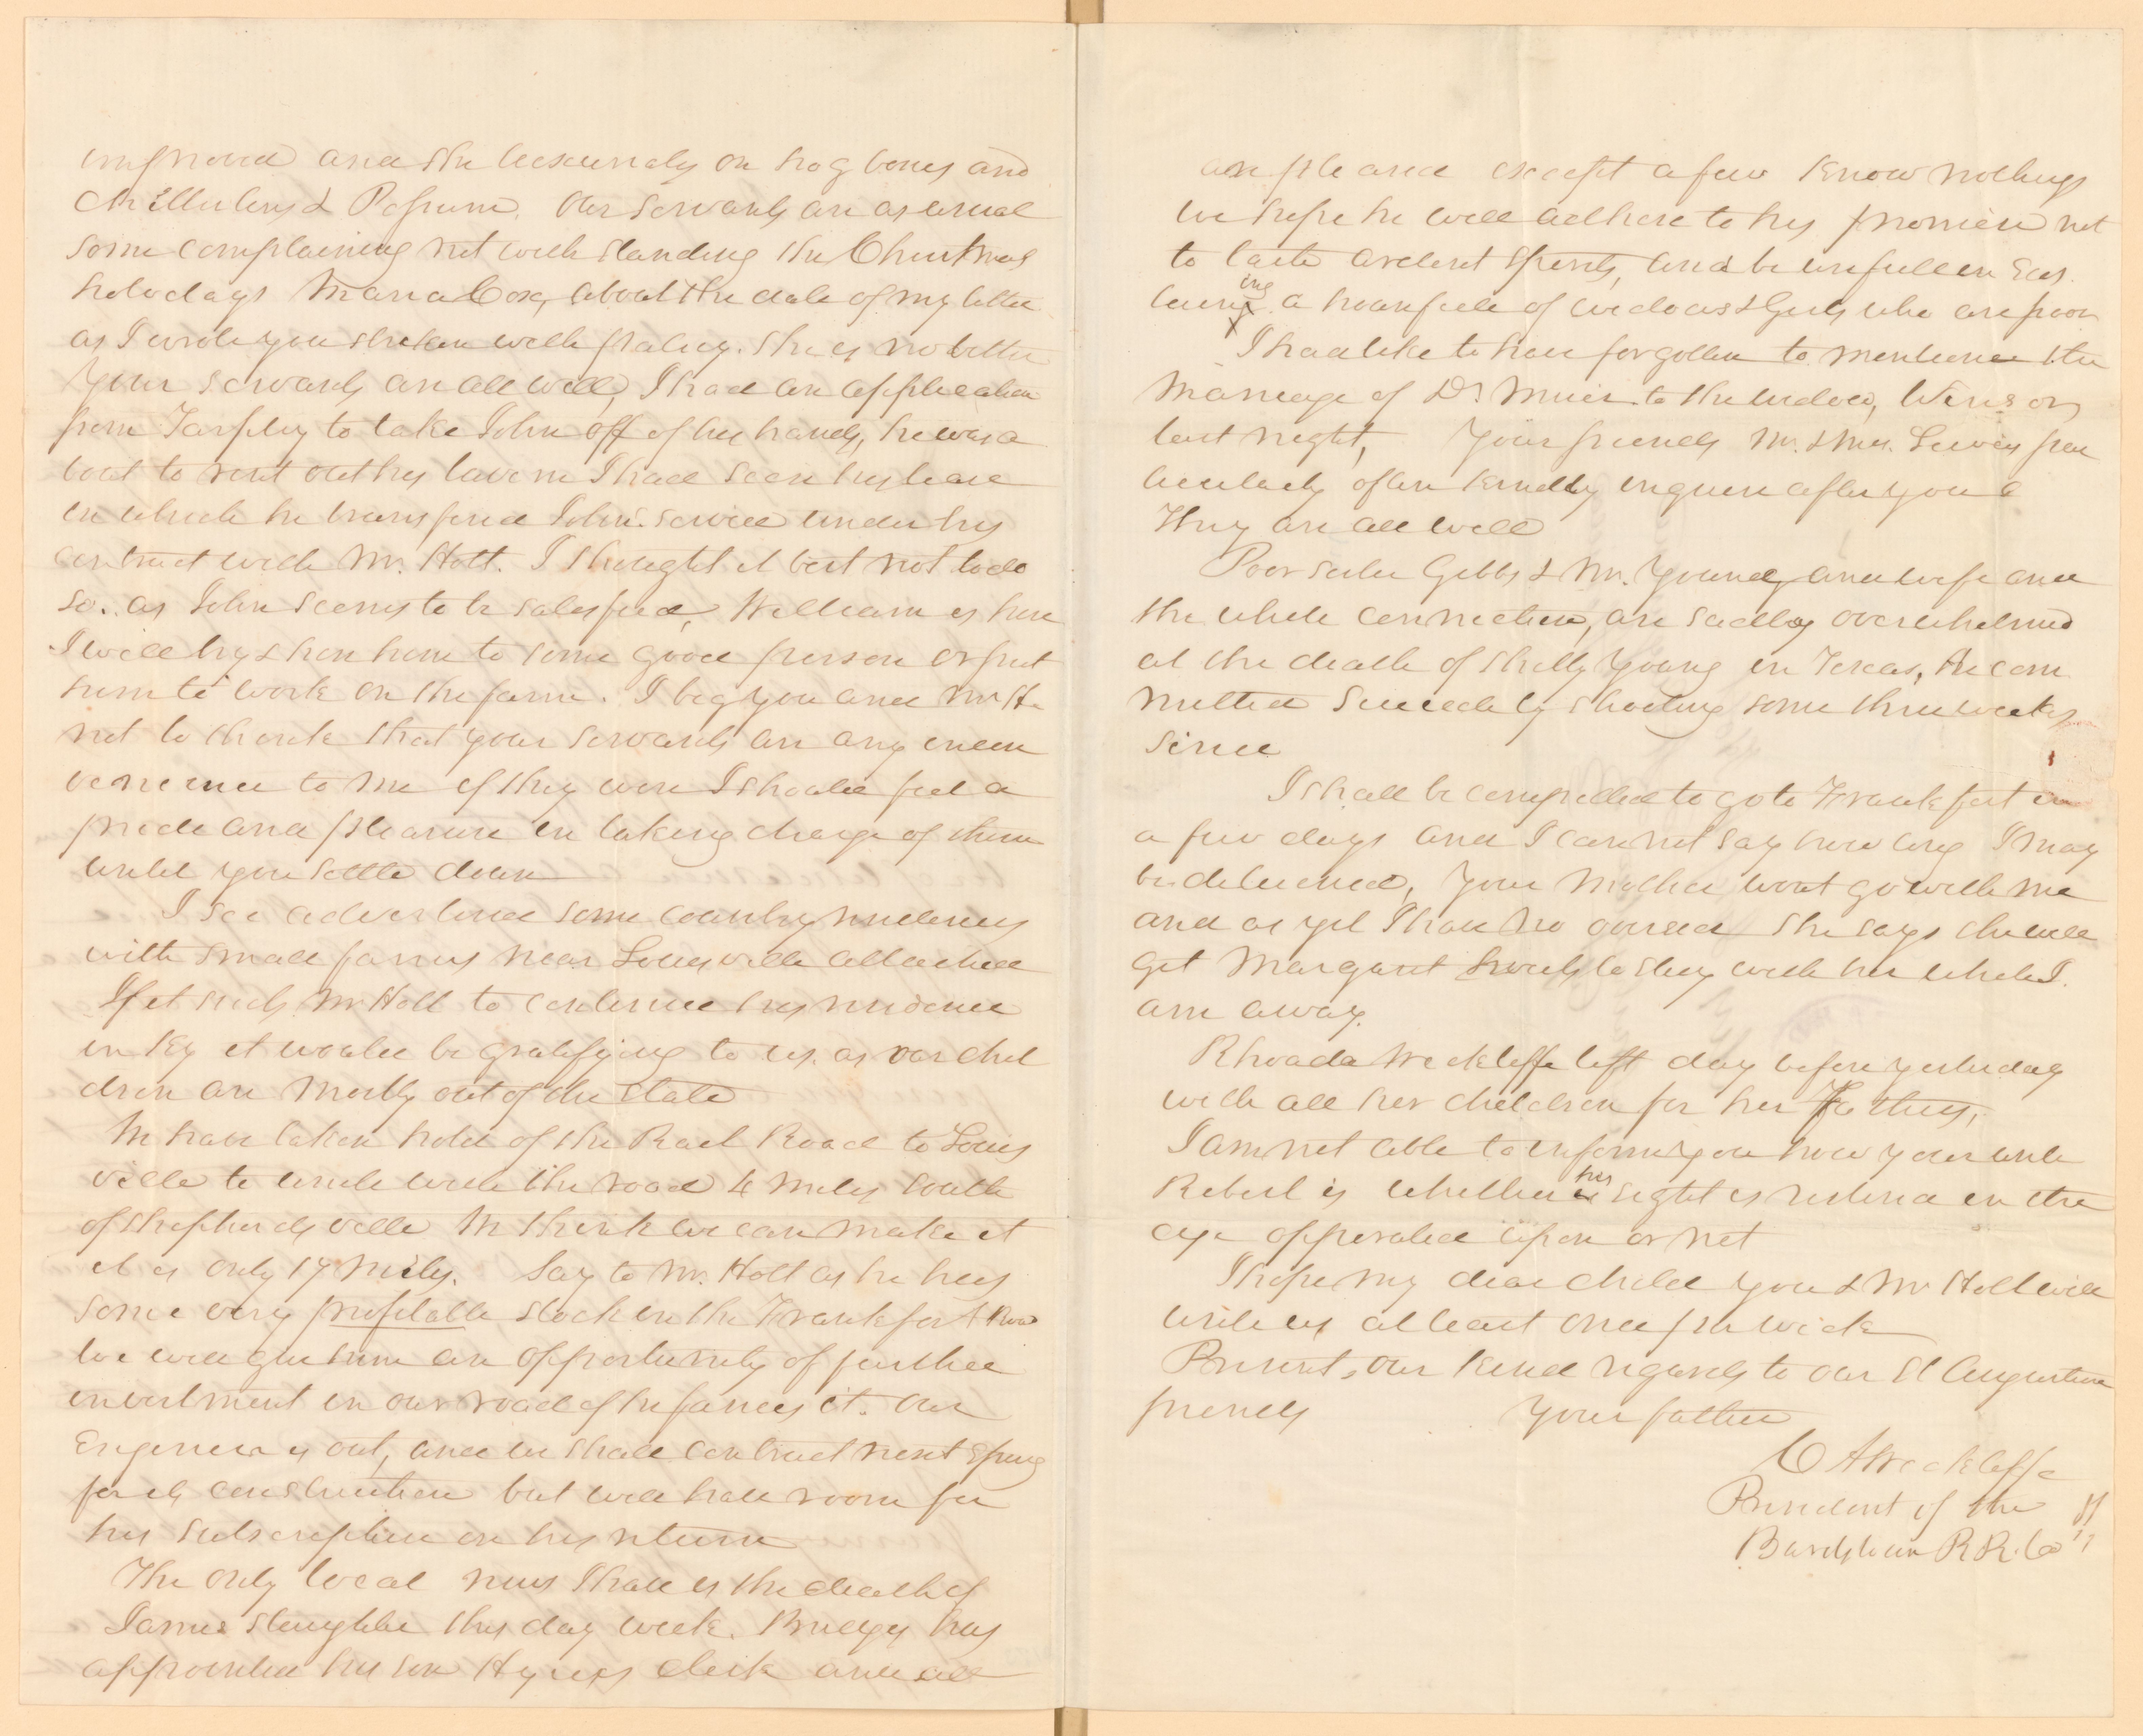 improved and she luxuriates on hog bones and
Chitterlings & Possum. Our servants are as usual
some complaining not with standing the Christmas
holodays Maria Cox, about the date of my letter
as I wrote you stricken with palsey. She is no better
Your servants are all well, I had an application
from Tarpley to take John off of his hands, he was a
bout to rent out his tavern I had seen his lease
in which he transfered John's service under his
contract with Mr. Holt. I thought it best not to do
so. as John seems to be satisfied, William is here
I will try & hire him to some good person or put
him to work on the farm. I beg you and Mr H.
not to think that your servants are any incon
venience to me if they were I should feel a
pride and pleasure in taking charge of them
until you settle down
I see advertised some country residences
with small farms near Louisville attached
If it suits Mr Holt to continue his residence
in Ky it would be gratifying to us. as our chil
dren are mostly out of the State
We have taken hold of the Rail Road to Louis
ville to unite with the road 4 miles South
of Shepherdsville We think we can make it
it is only 17 miles. Say to Mr. Holt as he has
some very profitable stock in the Frankfort Road
we will give him an opportunity of further
investment in our road if he fancies it. Our
Engineer is out, and we shall contract next Spring
for its construction but will have room for
his subscription on his return
The only local news I have is the death of
James Slaughter this day week. Bridges has
appointed his son Hynes clerk and all
are pleased except a few Know nothings
we hope he will adhere to his promise not
to taste ardent spirits, and be usefull in Sus
taining a housefull of widows & Girls who are poor
I had like to have forgotten to mention the
Marriage of Dr Muir to the widow, Wilson
last night, Your friends Mr. & Mrs. Lewis par
ticularly often kindly enquire after you &
They are all well
Poor sister Gibbs & Mr. Young and wife and
the whole connection, are sadly overwhelmed
at the death of Shelly Young in Texas, He com
mitted Suicide by shooting some three weeks
since
I shall be compelled to go to Frankfort in
a few days and I cannot say how long I may
be detained, Your Mother wont go with me
and as yet I have no overseer She says she will
get Margaret to stay with her while I.
am away.
Rhoada Wickliffe left day before yesterday
with all her children for her Fathers,
I am not able to inform you how your uncle
Robert is whether his sight is restored in the
eye opperated upon or not
I hope my dear child you & Mr Holt will
write us at least once pr week
Present, our kind regards to our St Augustine
friends Your father
C A Wickliffe
President of the
Bardstown R R. Co !!